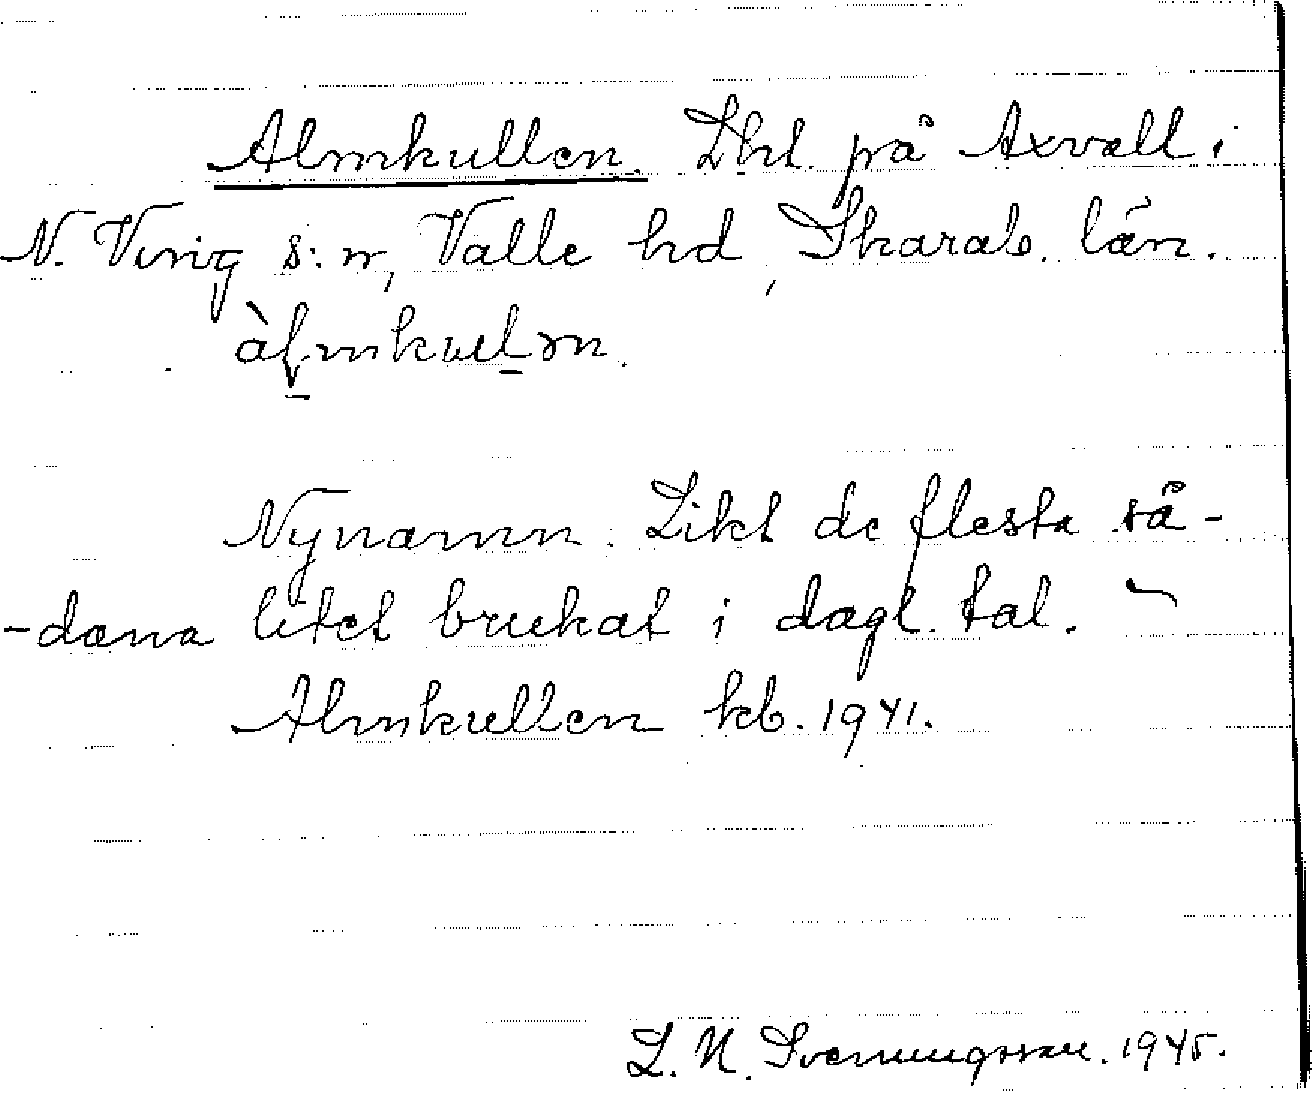 Almkullen. Lht. på Axvall i
N. Ving s:n, Valle hd, Skarab. län.
àlmkulən.
Nynamn. Likt de flesta så-
-dana litet brukat i dagl. tal. ~
Almkullen kb. 1941.
L. N. Svenungsson. 1945.